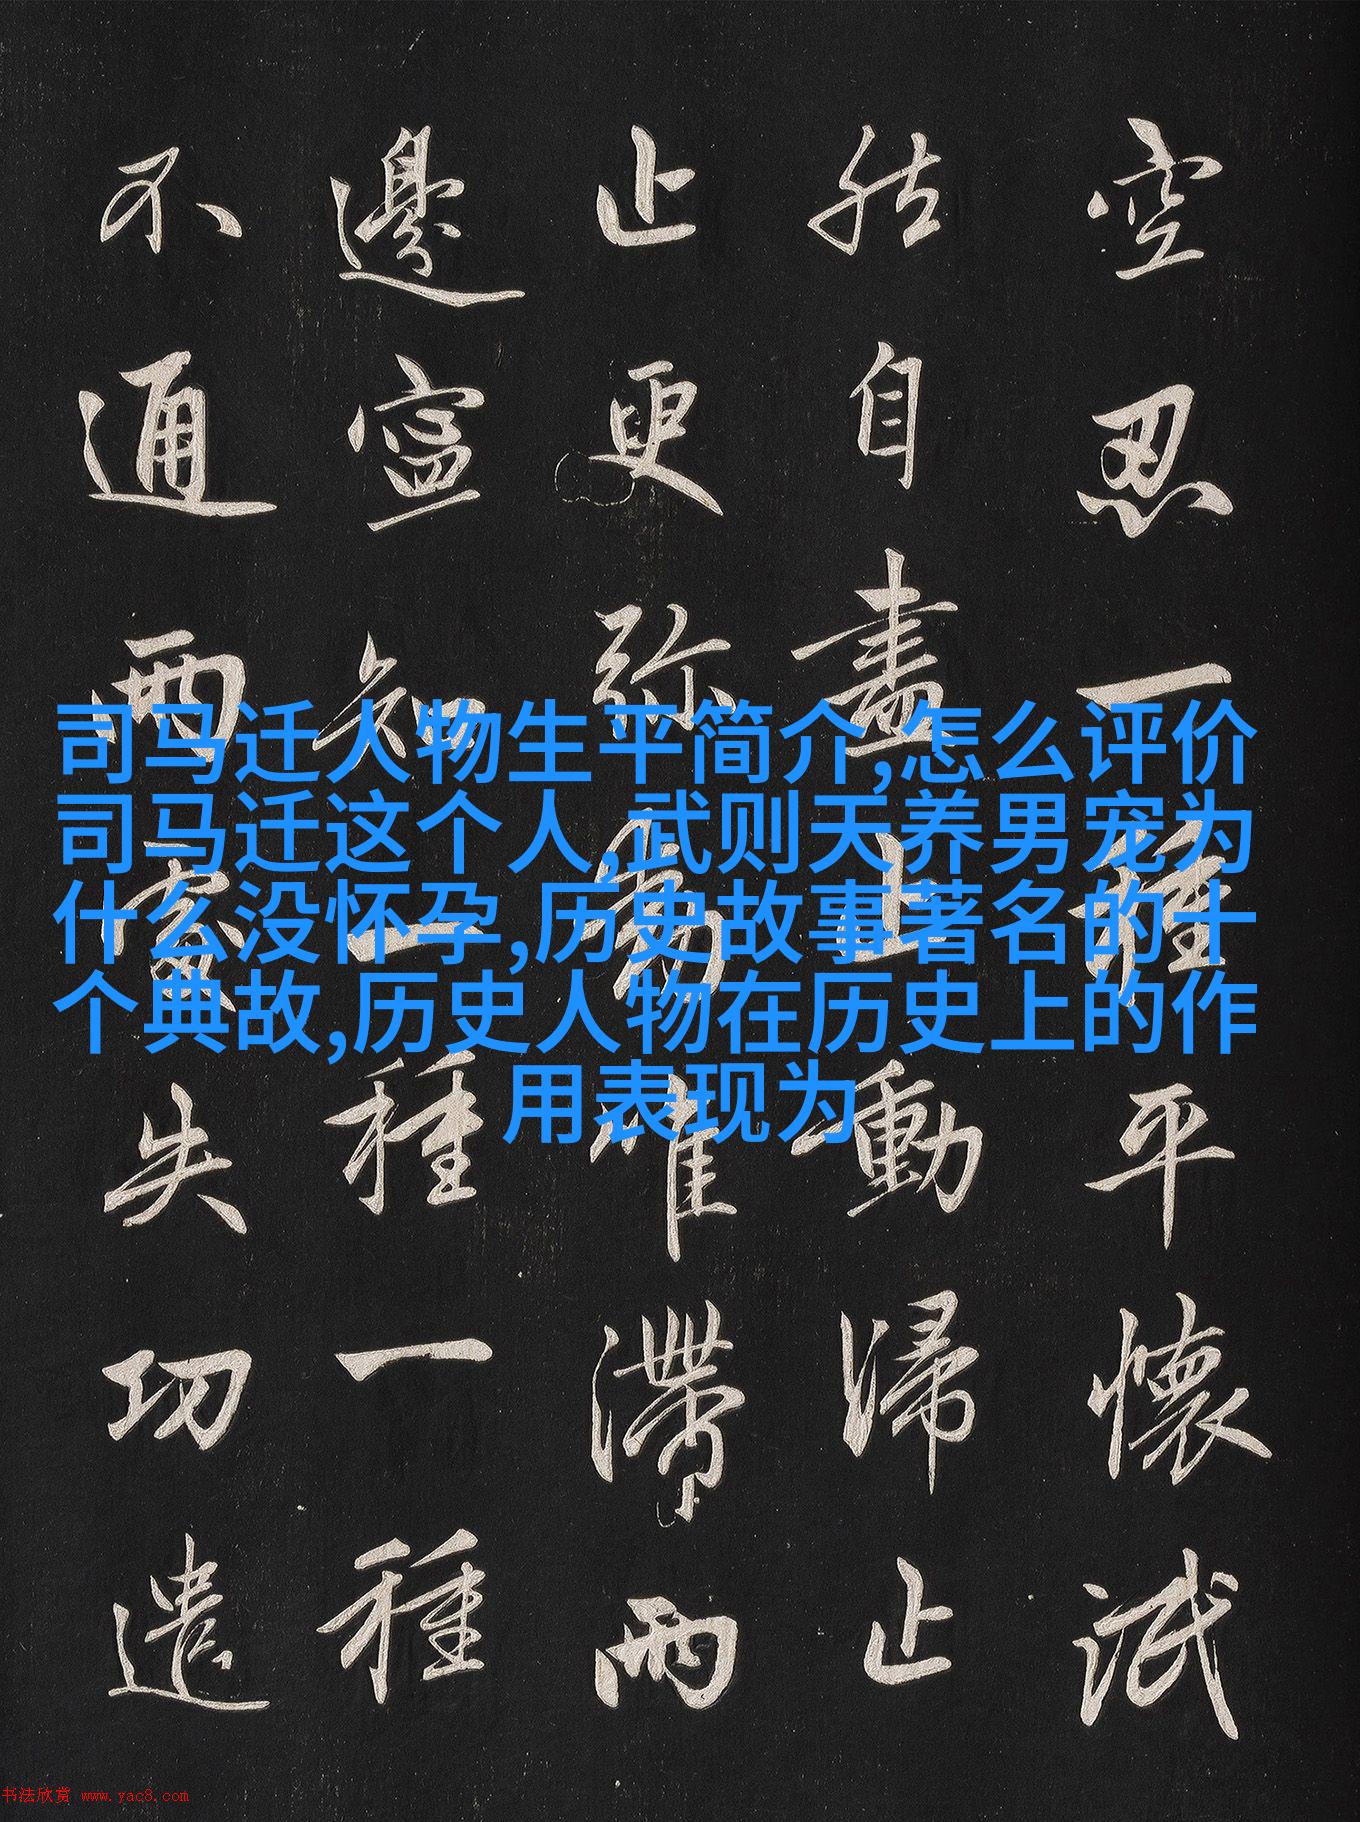 空忍一種平懷泯
然自盡止動歸止
止更彌唯滯兩
邊寧知一種一種
不通兩處失功遣
司马迁人物生平简介,怎么评价
司马迁这个人,武则天养男宠为
什么没怀孕,历史故事著名的十
个典故,历史人物在历史上的作
用表现为
书法欣赏 www.yac8.com